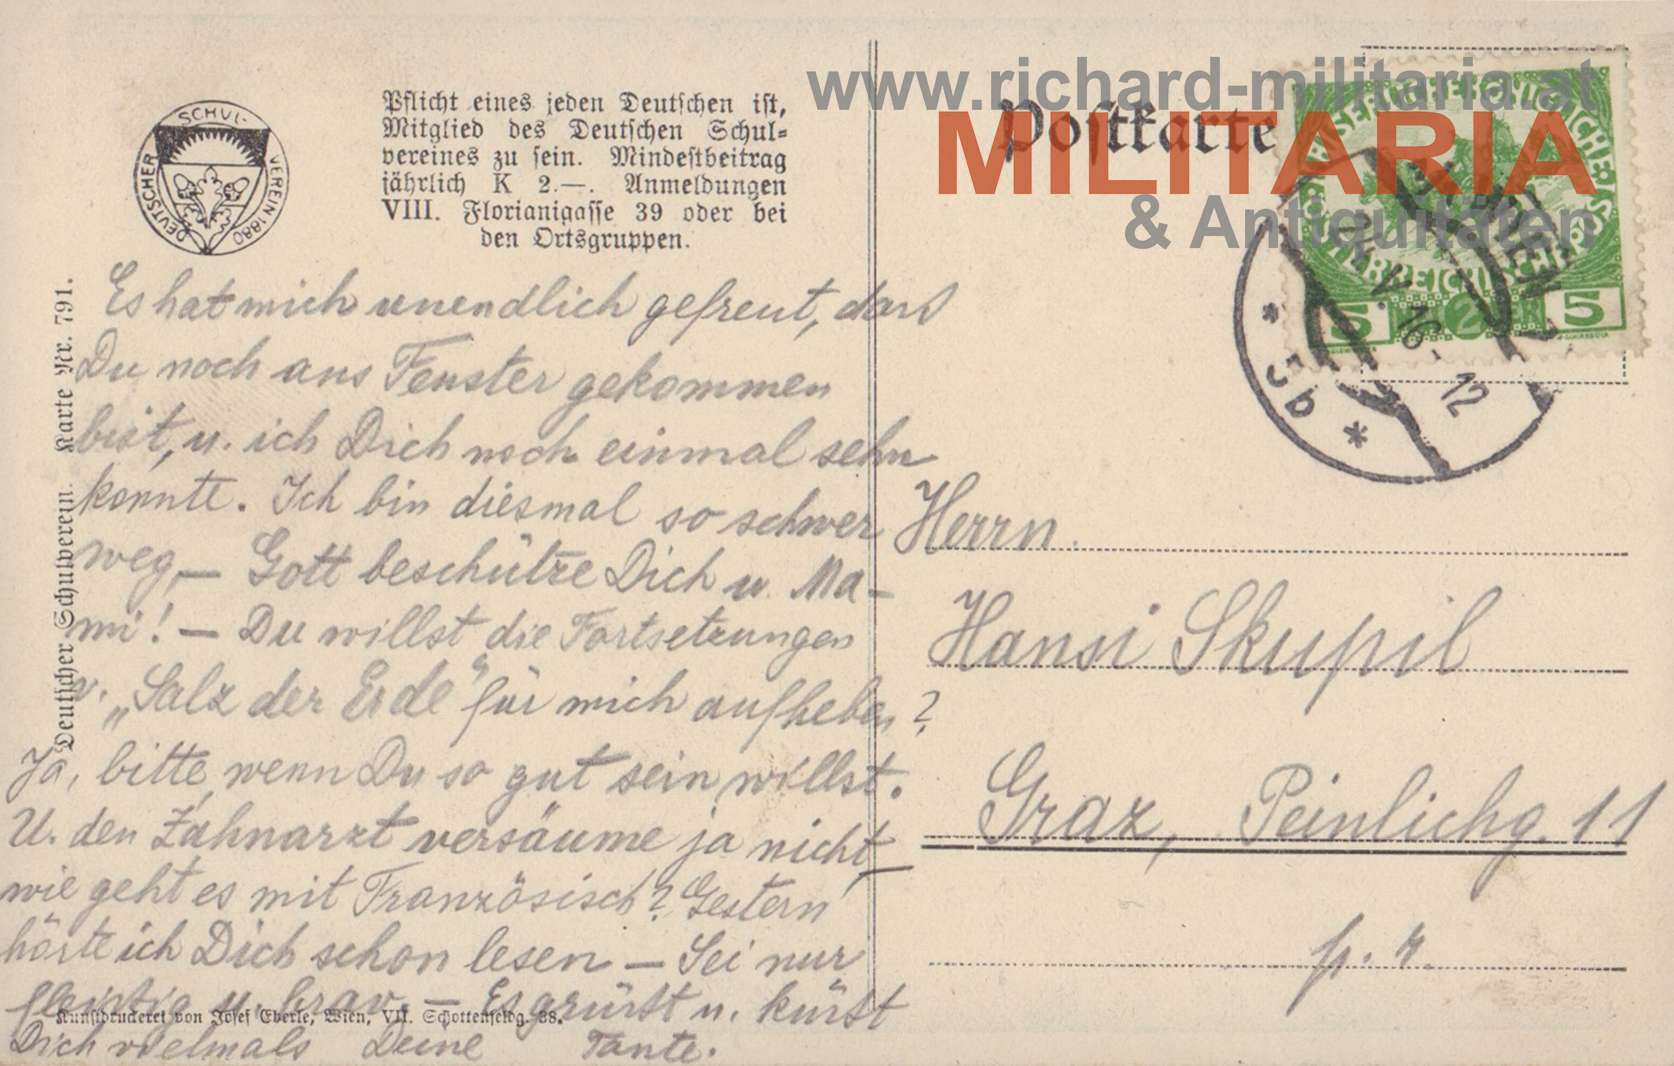 www.richard-militaria.at
MILITARIA
& Antiquitäten
DEUTSCHER SCHUL-VEREIN 1880
Pflicht eines jeden Deutschen ist,
Mitglied des Deutschen Schul=
vereines zu sein. Mindestbeitrag
jährlich K 2.—. Anmeldungen
VIII. Florianigasse 39 oder bei
den Ortsgruppen.
Postkarte
KAISERL. KÖNIGL. ÖSTERREICHISCHE POST
5 5
WIEN
V. 16 - 12
* 5b *
Deutscher Schulverein. Karte Nr. 791.
Es hat mich unendlich gefreut, dass
Du noch ans Fenster gekommen
bist, u. ich Dich noch einmal sehn
konnte. Ich bin diesmal so schwer
weg, — Gott beschütze Dich u. Ma-
mi! — Du willst die Fortsetzungen
v. „Salz der Erde" für mich aufheben?
Ja, bitte, wenn Du so gut sein willst.
U. den Zahnarzt versäume ja nicht, —
wie geht es mit Französisch? Gestern
hörte ich Dich schon lesen — Sei nur
fleißig u. brav. — Es grüsst u. küsst
Dich vielmals Deine Tante.
Kunstdruckerei von Josef Eberle, Wien, VII. Schottenfeldg. 38.
Herrn
Hansi Skupil
Graz, Peinlichg. 11
p. r.